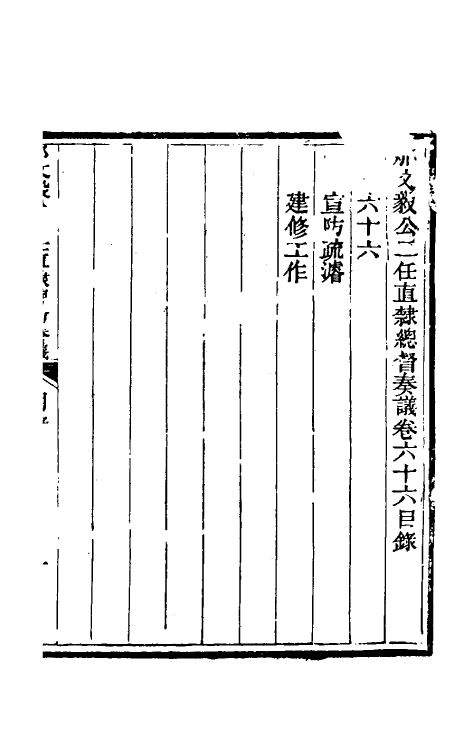 那文毅公二任直隸總督奏議卷六十六目錄
六十六
宣防疏濬
建修工作